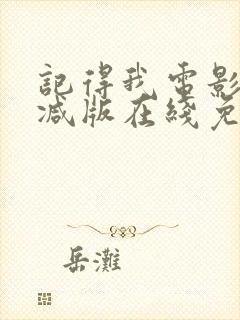 記得我電影
减版在綫免
岳灘